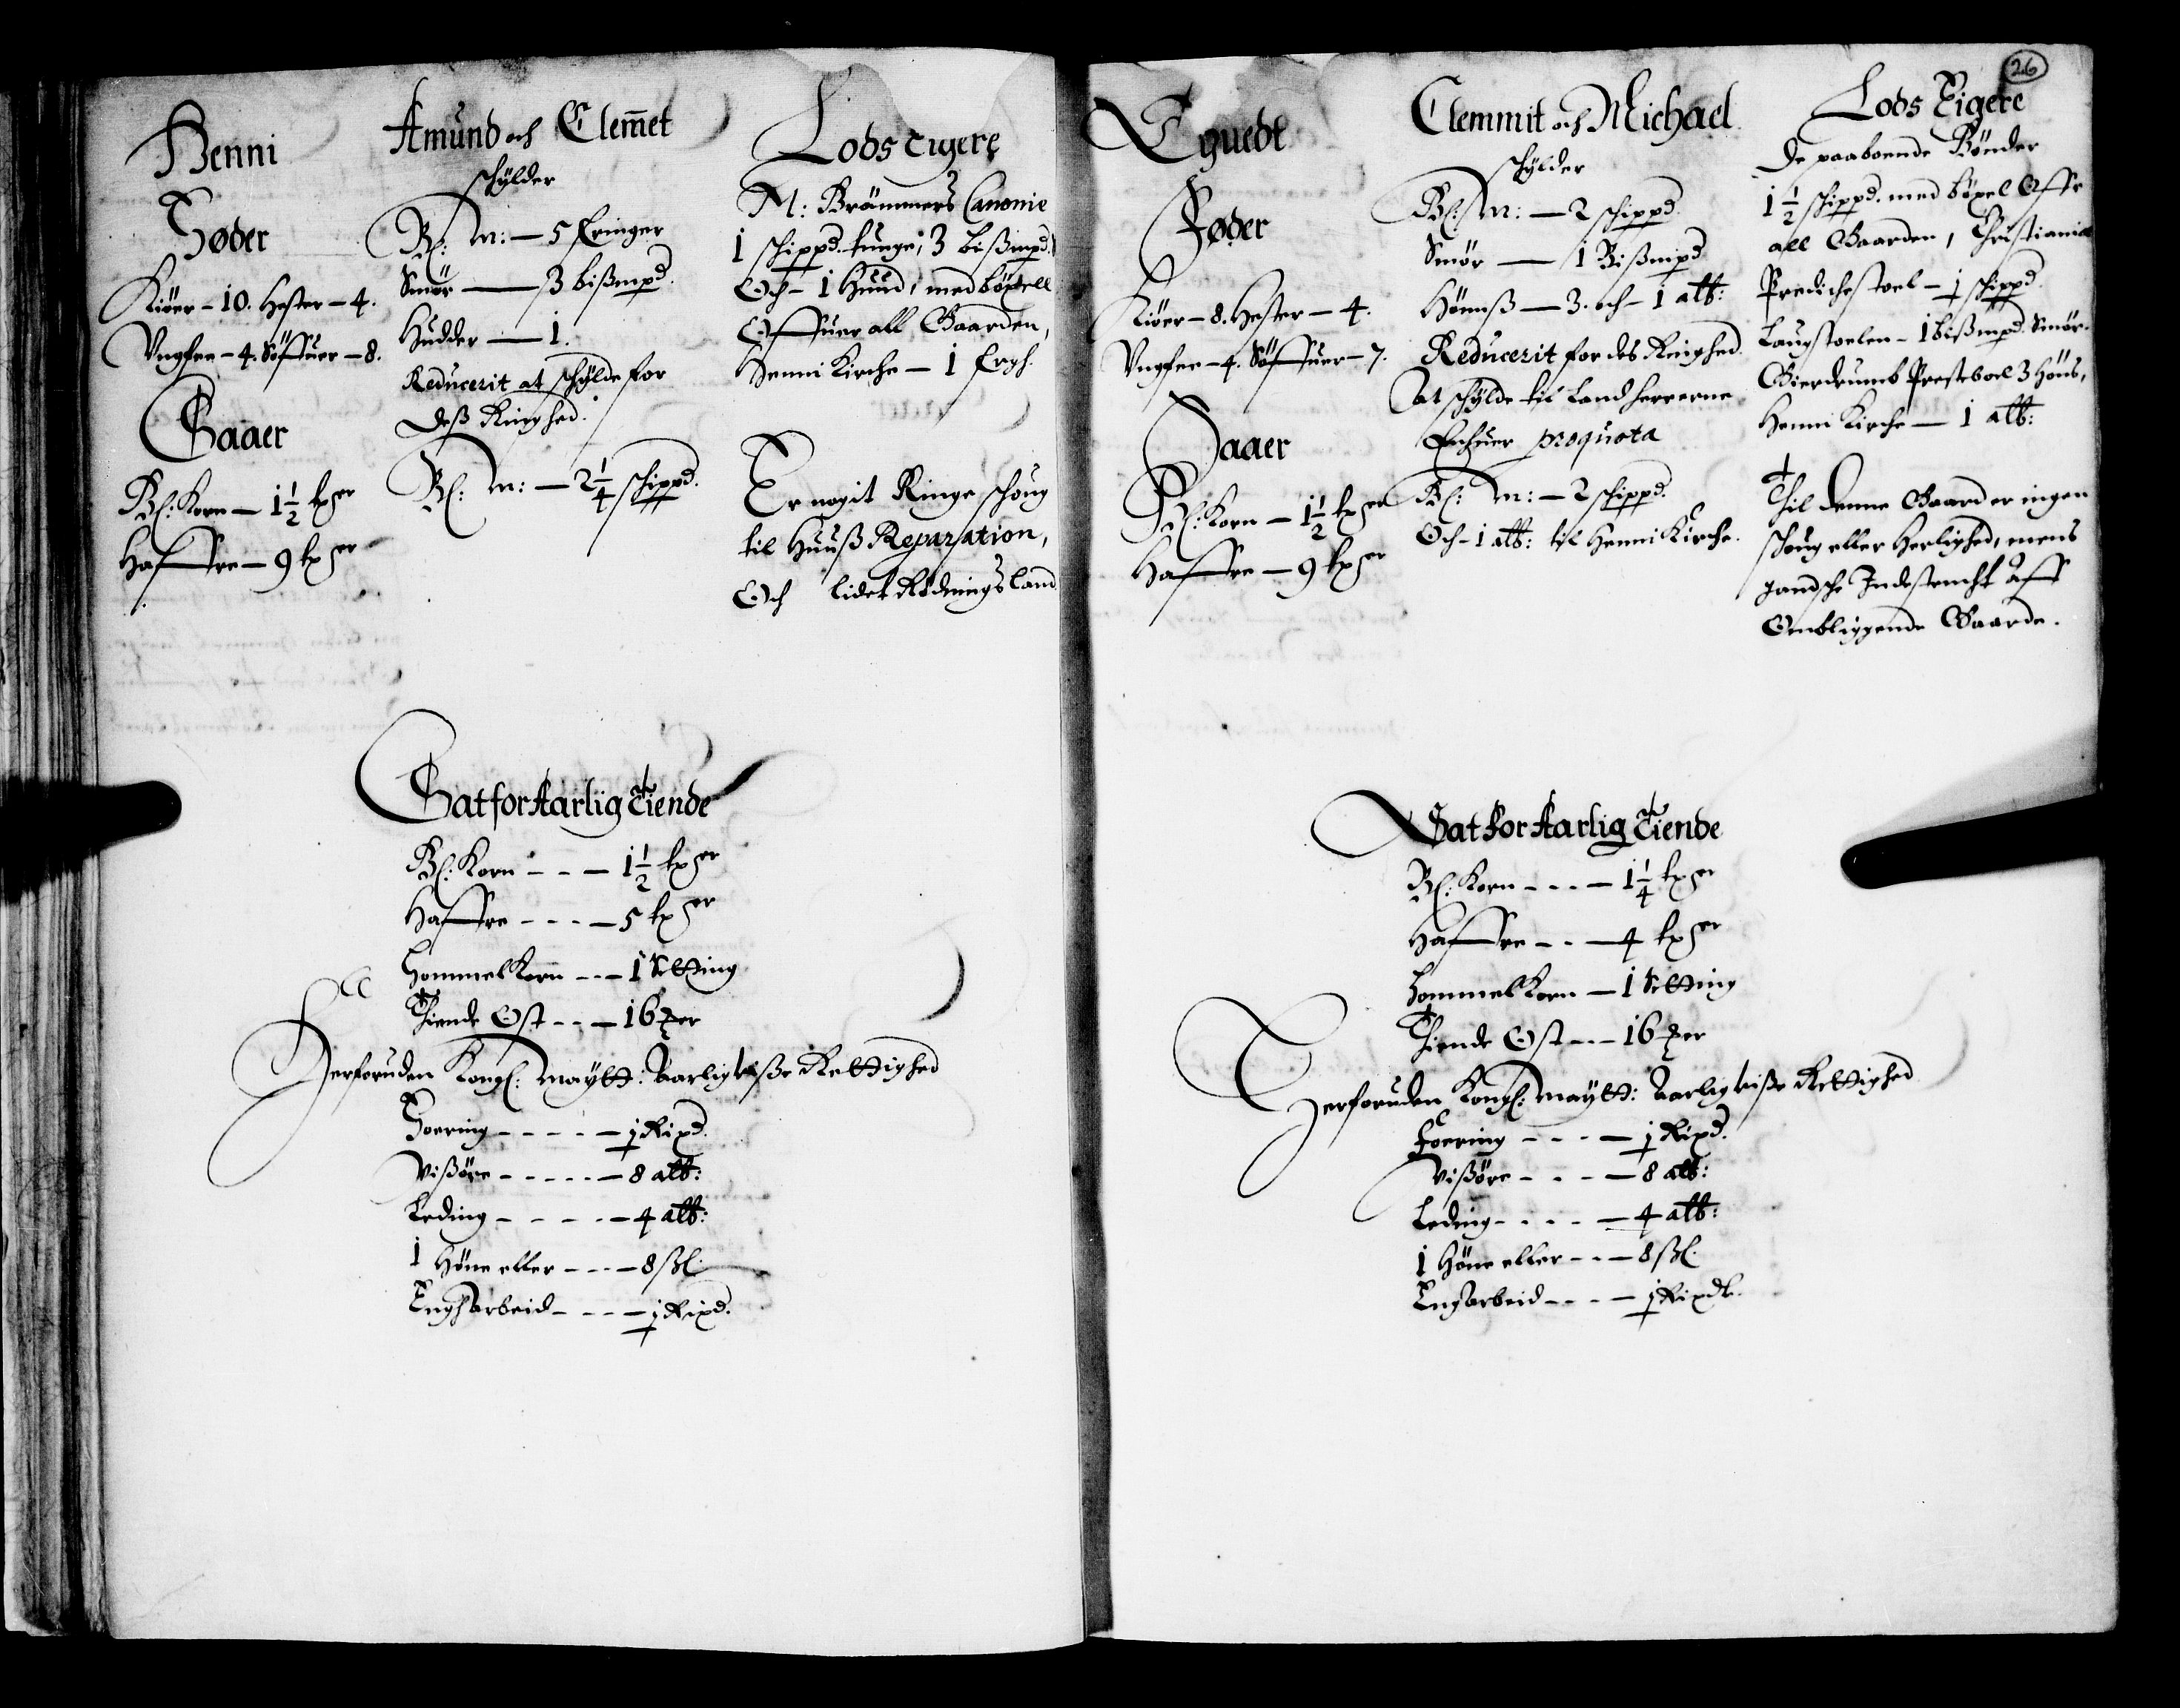 Henni
Føder
Kiöer - 10. Hester - 4.
Vngfee - 4. Söffuer - 8.
Saaer
Bl: Korn - 1 1/2 tr
Haffre - 9 tr
Amund och Clemet
schÿlder
Bl: m: - 5 fringer
Smör - 3 bißmpd.
Hudder - 1.
Reducerit at schÿlde for
deß Ringhed.
Bl: m: - 2 1/4 schippd.
Lods Eigere
M: Brömmers Canonie
1 schippd. tunge, 3 bißmpd.
Och - 1 Huud, med böxell
Offuer all Gaarden,
Henni Kirche - 1 frgh.
Er nogit Ringe schoug
til Huuß Reparation,
Och lidet Rödnings land
Sat for Aarlig Tiende
Bl: Korn - - - 1 1/2 tr
Haffre - - - 5 tr
Hommelkorn - - 1 Setting
Thiende Ost - - 16 mrer
Herforuden Kongl: Maÿtt: Aarlig wiße Rettighed
Foering - - - - 1/2 Rixd.
Vißöre - - - - 8 alb:
Leding - - - - 4 alb:
1 Höne eller - - - 8 ßl.
Engßarbeid - - - 1/2 Rixd.
26
Eguedt
Føder
Kiöer - 8. Hester - 4.
Vngfee - 4. Söffuer - 7.
Saaer
Bl: Korn - 1 1/2 tr
Haffre - 9 tr
Clemmit och Michael
schÿlder
Bl: m: - 2 schippd.
Smör - 1 Bißmpd
Hönnß - 3. och - 1 alb:
Reducerit for des Ringhed.
At schÿlde til Landherrerne
Enhuer proquota
Bl: m: - 2 schippd.
Och - 1 alb: til Henni Kirche.
Lods Eigere
De paaboende Bönder
1 1/2 schippd. med böxel Offr
all Gaarden, Christiania
Predichestoel - 1/2 schippd.
Laugstoelen - 1 Bißmpd. Smör.
Gierdrumb Presteboel 3 Höns,
Henni Kirche - 1 alb:
Thil denne Gaard er ingen
schoug eller Herlighed, mens
gandsche Indstencht Aff
Ombliggende Gaarde.
Sat for Aarlig Tiende
Bl: Korn - - - 1 1/4 tr
Haffre - - - 4 tr
Hommelkorn - 1 Setting
Thiende Ost - - 16 mrer
Herforuden Kongl: Maÿtt: Aarlig wiße Rettighed
Foering - - - 1/2 Rixd.
Vißöre - - - 8 alb:
Leding - - - - 4 alb:
1 Höne eller - - 8 ßl.
Engarbeid - - - 1/2 Rixdl.